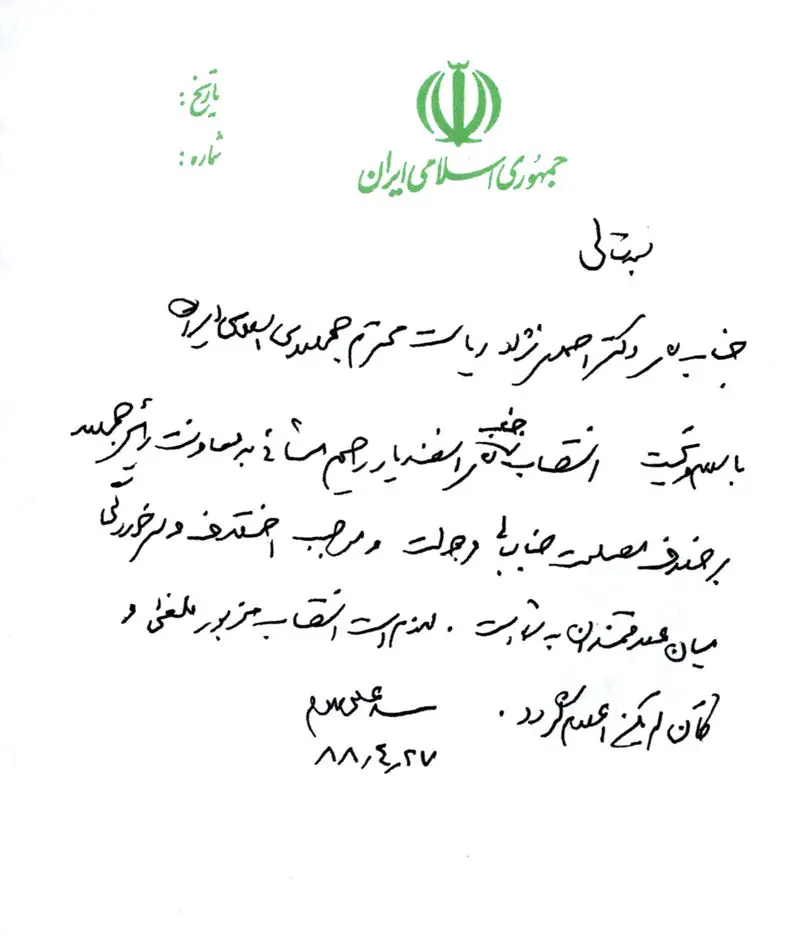 جمهوری اسلامی ایران
تاریخ :
شماره :
بسمه‌تعالی
جناب آقای دکتر احمدی نژاد ریاست محترم جمهوری اسلامی ایران
با سلام و تحیت انتصاب جناب آقای اسفندیار رحیم مشائی به معاونت رئیس جمهور
بر خلاف مصلحت جنابعالی و دولت و موجب اختلاف و سرخوردگی
میان علاقمندان به شما است . لازم است انتصاب مزبور ملغی و
کأن لم یکن اعلام گردد .
سید علی خامنه‌ای
۸۸٫۴٫۲۷